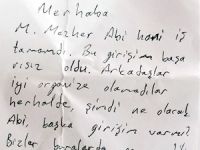 Merhaba
M. Mazher Abi hani iş
tamamdı. Bu girişim başa
rısız oldu. Arkadaşlar
iyi organize olamadılar
herhalde, şimdi ne olacak
Abi, başka girişim varmı?
Bizler buralarda